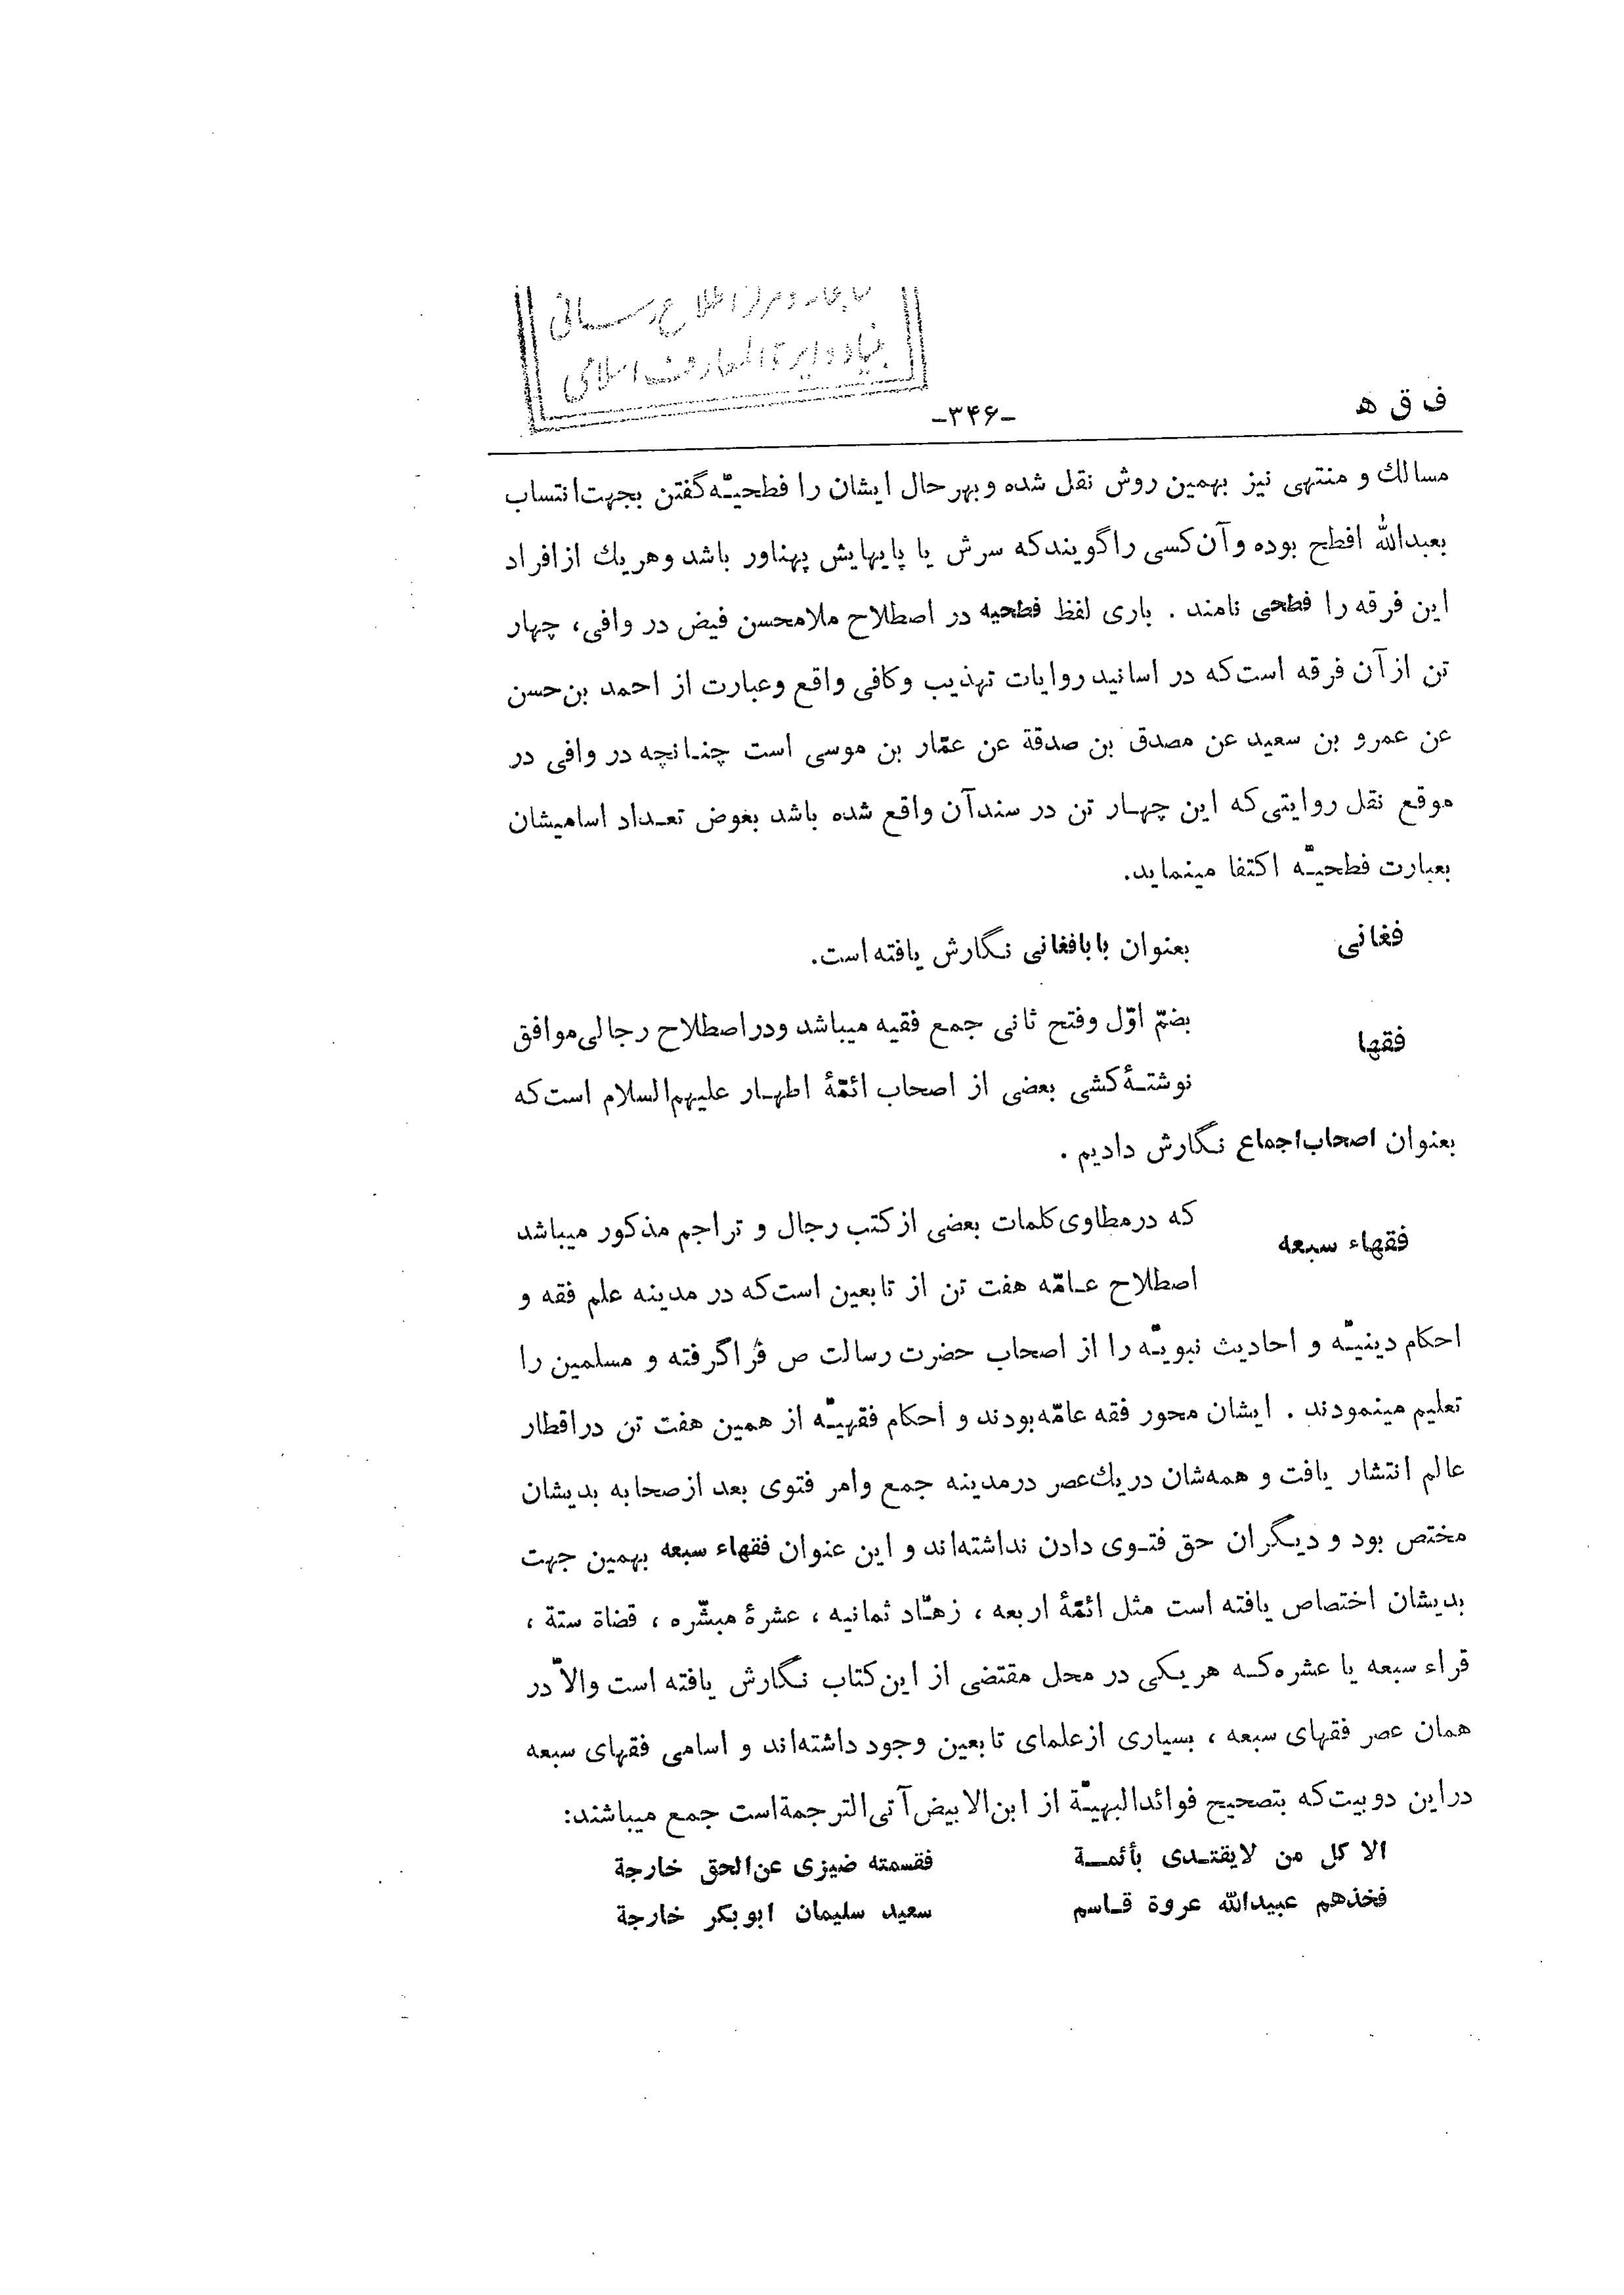 اطلاع رسانی
بنیاد دایرة المعارف اسلامی
ف ق ه
-۳۴۶-
مسالك و منتهی نیز بهمین روش نقل شده و بهرحال ایشان را فطحیّه گفتن بجهت انتساب
بعبدالله افطح بوده و آن کسی را گویند که سرش یا پایهایش پهناور باشد و هریك از افراد
این فرقه را فطحی نامند . باری لفظ فطحیه در اصطلاح ملامحسن فیض در وافی، چهار
تن از آن فرقه است که در اسانید روایات تهذیب و کافی واقع و عبارت از احمد بن حسن
عن عمرو بن سعید عن مصدق بن صدقة عن عمّار بن موسی است چنانچه در وافی در
موقع نقل روایتی که این چهار تن در سند آن واقع شده باشد بعوض تعداد اسامیشان
بعبارت فطحیّه اکتفا مینماید.
فغانی
بعنوان بابافغانی نگارش یافته است.
فقها
بضمّ اوّل و فتح ثانی جمع فقیه میباشد و در اصطلاح رجالی موافق
نوشتۀ کشی بعضی از اصحاب ائمّۀ اطهار علیهم السلام است که
بعنوان اصحاب اجماع نگارش دادیم .
فقهاء سبعه
که در مطاوی کلمات بعضی از کتب رجال و تراجم مذکور میباشد
اصطلاح عامّه هفت تن از تابعین است که در مدینه علم فقه و
احکام دینیّه و احادیث نبویّه را از اصحاب حضرت رسالت ص فراگرفته و مسلمین را
تعلیم مینمودند . ایشان محور فقه عامّه بودند و احکام فقهیّه از همین هفت تن در اقطار
عالم انتشار یافت و همه‌شان در یك عصر در مدینه جمع و امر فتوی بعد از صحابه بدیشان
مختص بود و دیگران حق فتوی دادن نداشته‌اند و این عنوان فقهاء سبعه بهمین جهت
بدیشان اختصاص یافته است مثل ائمّۀ اربعه ، زهّاد ثمانیه ، عشرۀ مبشّره ، قضاة ستة ،
قراء سبعه یا عشره که هر یکی در محل مقتضی از این کتاب نگارش یافته است والاّ در
همان عصر فقهای سبعه ، بسیاری از علمای تابعین وجود داشته‌اند و اسامی فقهای سبعه
در این دو بیت که بتصحیح فوائدالبهیّة از ابن الابیض آتی الترجمة است جمع میباشند:
الا کل من لایقتدی بأئمة فقسمته ضیزی عن الحق خارجة
فخذهم عبیدالله عروة قاسم سعید سلیمان ابوبکر خارجة